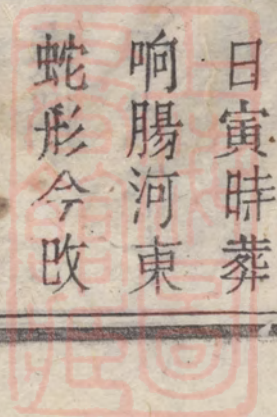 日寅時葬
响腸河東
蛇形今改